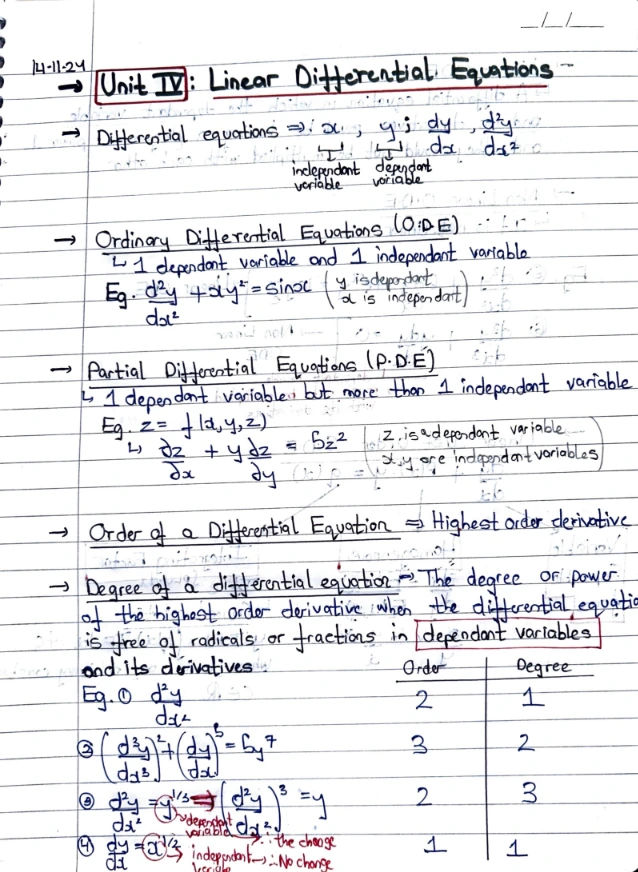 14-11-24
→ Unit IV : Linear Differential Equations
→ Differential equations ⇒ x , y ; dy/dx , d²y/dx²
independant variable dependant variable
→ Ordinary Differential Equations (O.D.E)
↳ 1 dependant variable and 1 independant variable
Eg. d²y/dx² + xy² = sinx (y is dependant
x is independant)
→ Partial Differential Equations (P.D.E)
↳ 1 dependant variable, but more than 1 independant variable
Eg. z = f(x,y,z)
↳ ∂z/∂x + y ∂z/∂y = 5z² (z is a dependant variable
x,y are independant variables)
→ Order of a Differential Equation ⇒ Highest order derivative
→ Degree of a differential equation ⇒ The degree or power
of the highest order derivative when the differential equatio
is free of radicals or fractions in dependant variables
and its derivatives. Order Degree
Eg. ① d²y/dx² 2 1
② (d³y/dx³)² + (dy/dx)⁵ = 5y⁷ 3 2
③ d²y/dx² = y^1/3 ⇒ (d²y/dx²)³ = y 2 3
dependant variable ∴ the change
④ dy/dx = x^1/2 1 1
independant → ∴ No change